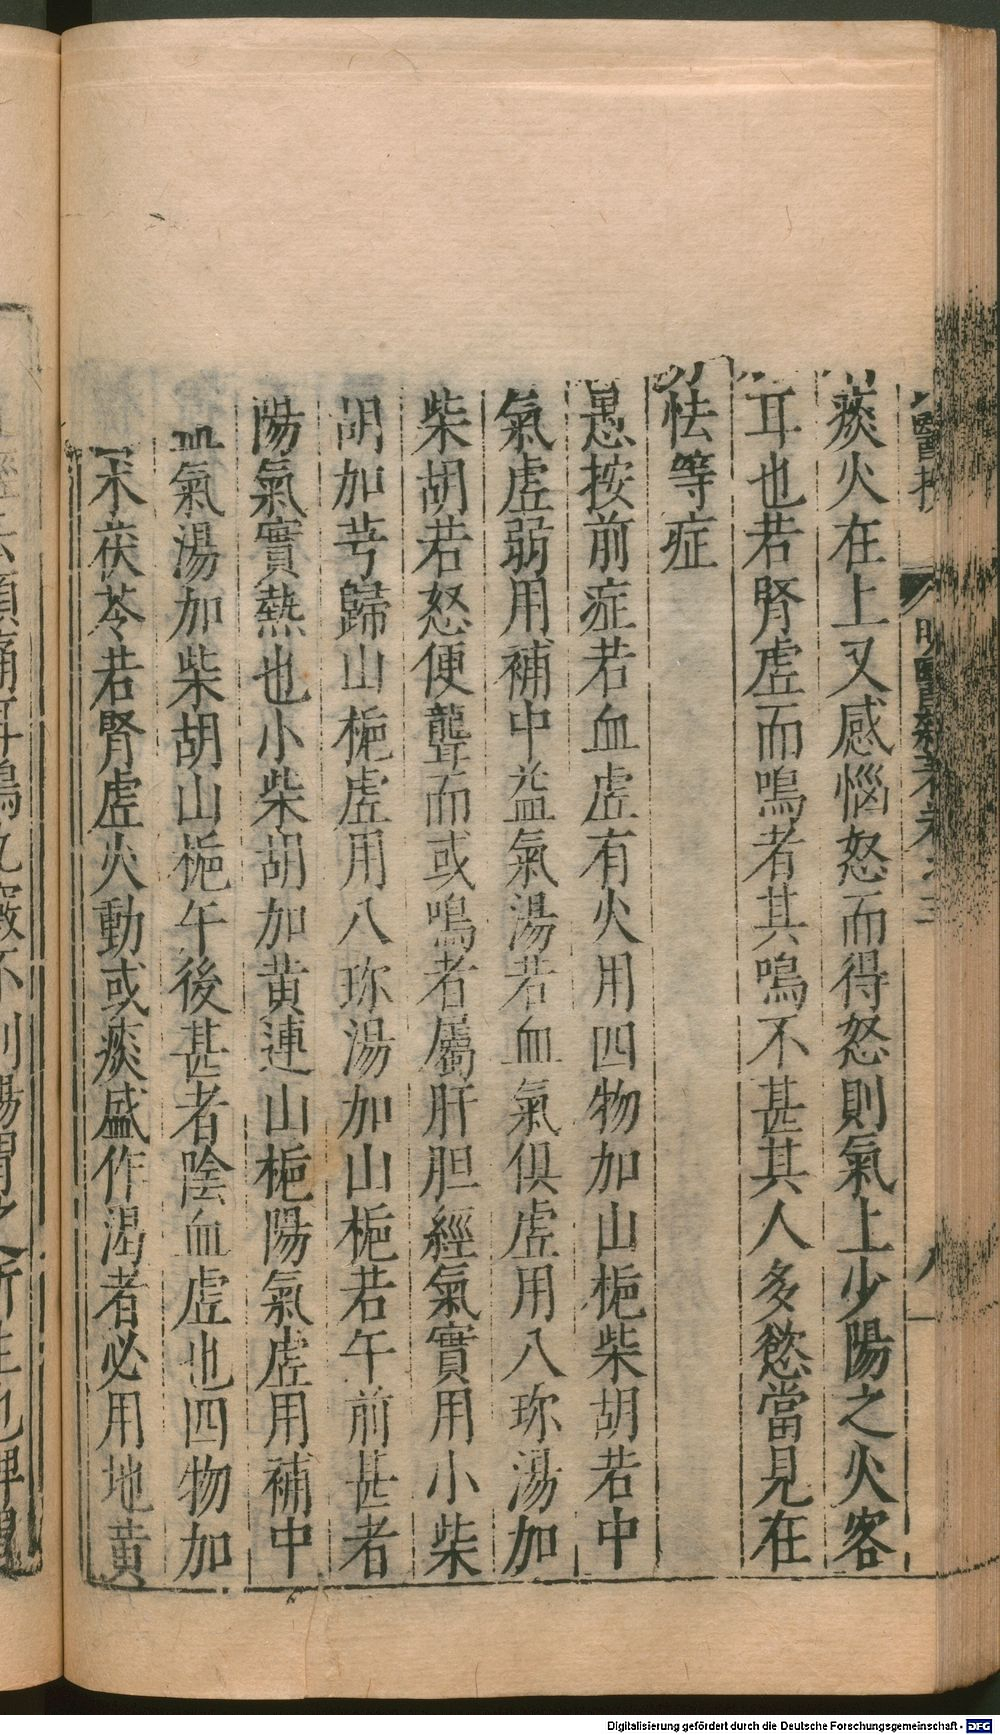 痰火在上又感惱怒而得怒則氣上少陽之火客
耳也若腎虛而鳴者其鳴不甚其人多慾當見在
怯等症
愚按前症若血虛有火用四物加山梔柴胡若中
氣虛弱用補中益氣湯若血氣俱虛用八珎湯加
柴胡若怒便聾而或鳴者屬肝胆經氣實用小柴
胡加芎歸山梔虛用八珎湯加山梔若午前甚者
陽氣實熱也小柴胡加黃連山梔陽氣虛用補中
氣湯加柴胡山梔午後甚者陰血虛也四物加
朮茯苓若腎虛火動或痰盛作渴者必用地黃
明醫雜著卷之三
八
Digitalisierung gefördert durch die Deutsche Forschungsgemeinschaft - DFG